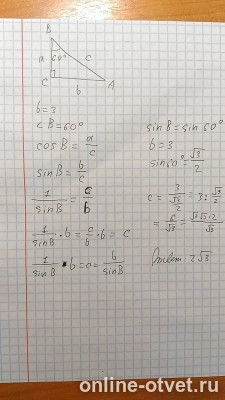 B
a 60° c
C b A
b = 3
∠B = 60°
cos B = a/c
sin B = b/c
1/sin B = c/b
1/sin B · b = c/b · b = c
1/sin B · b = c = b/sin B
sin B = sin 60°
b = 3
sin 60° = √3/2
c = 3/(√3/2) = 3 : √3/2
= 6/√3 = √3·√3·2/√3
Ответ 2√3
online-otvet.ru